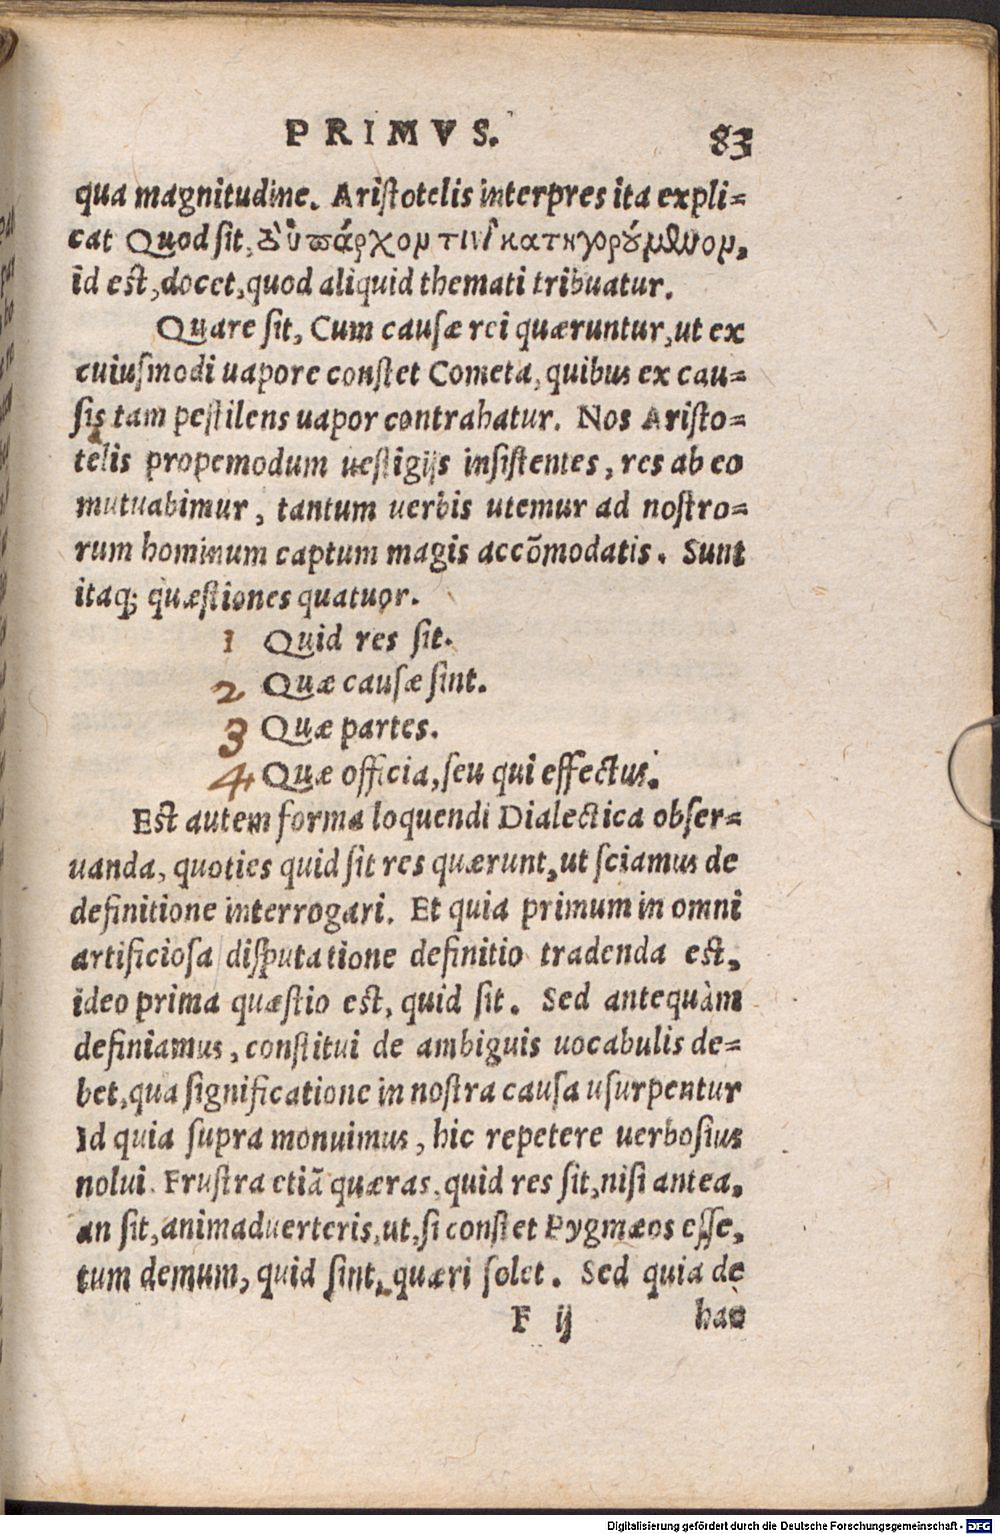 PRIMVS. 83
qua magnitudine. Aristotelis interpres ita expli-
cat Quod sit, τὸ ὑπάρχον τινὶ κατηγορούμενον,
id est, docet, quod aliquid themati tribuatur.
Quare sit, Cum causæ rei quæruntur, ut ex
cuiusmodi uapore constet Cometa, quibus ex cau-
sis tam pestilens uapor contrahatur. Nos Aristo-
telis propemodum uestigijs insistentes, res ab eo
mutuabimur, tantum uerbis utemur ad nostro-
rum hominum captum magis accõmodatis. Sunt
itaq; quæstiones quatuor.
1 Quid res sit.
2 Quæ causæ sint.
3 Quæ partes.
4 Quæ officia, seu qui effectus.
Est autem forma loquendi Dialectica obser-
uanda, quoties quid sit res quærunt, ut sciamus de
definitione interrogari. Et quia primum in omni
artificiosa disputatione definitio tradenda est,
ideo prima quæstio est, quid sit. Sed antequàm
definiamus, constitui de ambiguis uocabulis de-
bet, qua significatione in nostra causa usurpentur
Id quia supra monuimus, hic repetere uerbosius
nolui. Frustra etiã quæras, quid res sit, nisi antea,
an sit, animaduerteris, ut, si constet Pygmæos esse,
tum demum, quid sint, quæri solet. Sed quia de
F ij hac
Digitalisierung gefördert durch die Deutsche Forschungsgemeinschaft - DFG